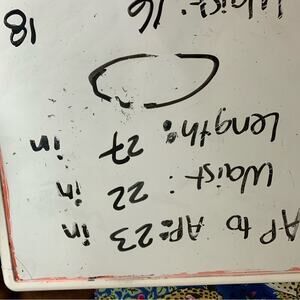 AP to AP: 23 in
Waist: 22 in
Length: 27 in
Waist: 16 18